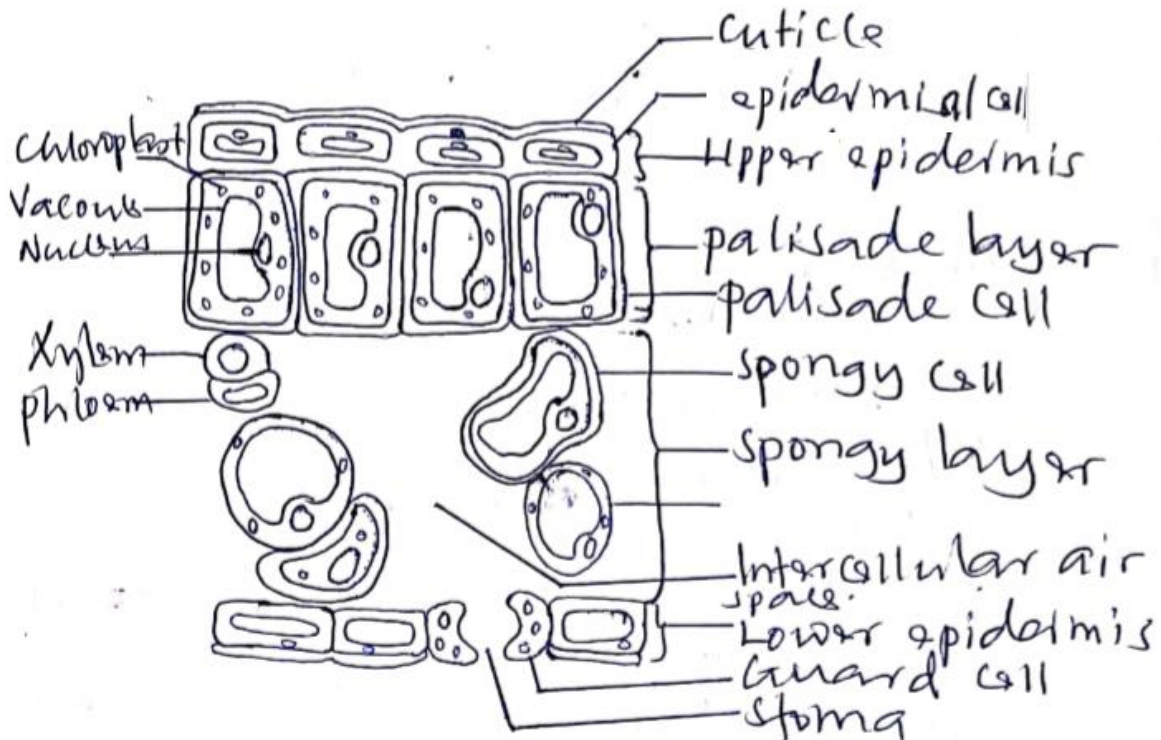 Cuticle
epidermial cell
Upper epidermis
Chloroplast
Vacoule
Nucleus
palisade layer
palisade cell
Xylem
phloem
spongy cell
spongy layer
Intercellular air
space.
Lower epidermis
Guard cell
stoma